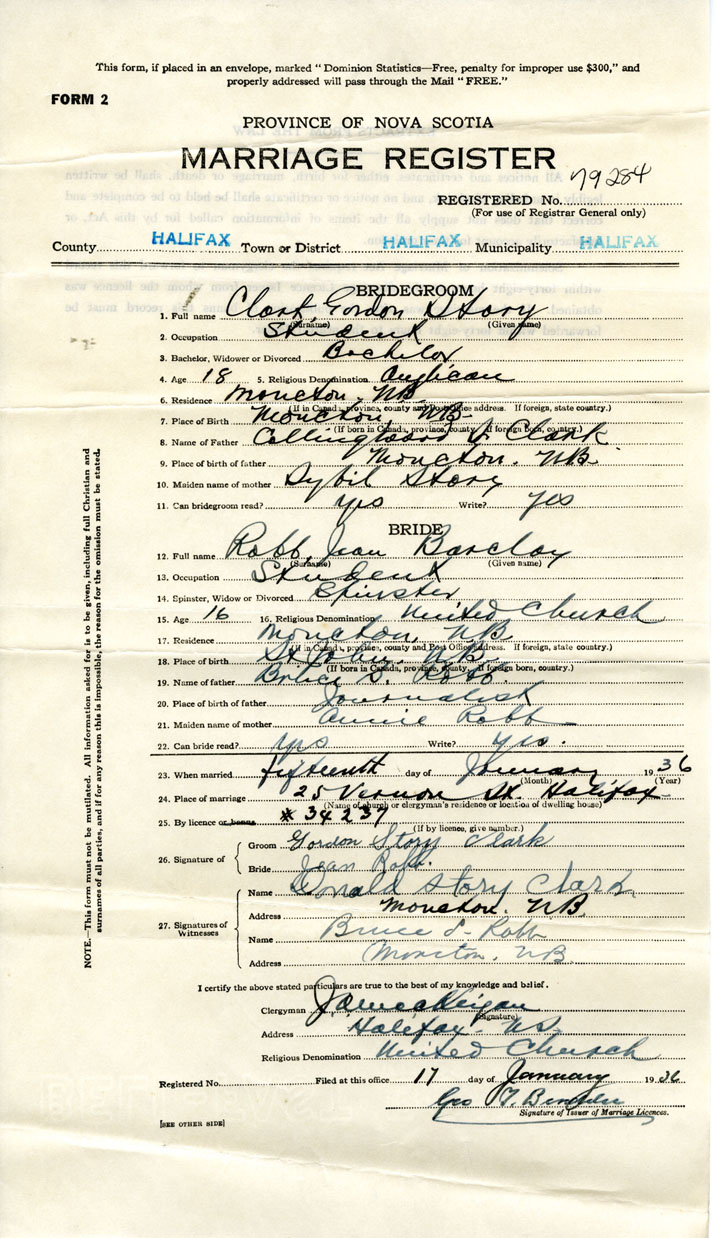 This form, if placed in an envelope, marked “Dominion Statistics—Free, penalty for improper use $300,” and
properly addressed will pass through the Mail “FREE.”
FORM 2
PROVINCE OF NOVA SCOTIA
MARRIAGE REGISTER
REGISTERED No. 79284
(For use of Registrar General only)
County HALIFAX Town or District HALIFAX Municipality HALIFAX
BRIDEGROOM
1. Full name Clark Gordon Story
(Surname) (Given name)
2. Occupation Student
3. Bachelor, Widower or Divorced Bachelor
4. Age 18 5. Religious Denomination Anglican
6. Residence Moncton, NB
(If in Canada, province, county and Post Office address. If foreign, state country.)
7. Place of Birth Moncton, NB
(If born in Canada, province, county. If foreign born, country.)
8. Name of Father Collingwood Clark
9. Place of birth of father Moncton. NB.
10. Maiden name of mother Sybil Story
11. Can bridegroom read? yes Write? yes
BRIDE
12. Full name Robb, Jean Barclay
(Surname) (Given name)
13. Occupation Student
14. Spinster, Widow or Divorced Spinster
15. Age 16 16. Religious Denomination United Church
17. Residence Moncton, NB
(If in Canada, province, county and Post Office address. If foreign, state country.)
18. Place of birth St John, NB.
(If born in Canada, province, county. If foreign born, country.)
19. Name of father Bruce S. Robb.
20. Place of birth of father Journalist
21. Maiden name of mother Annie Robb
22. Can bride read? yes Write? yes.
23. When married fifteenth day of January 1936
(Month) (Year)
24. Place of marriage 25 Vernon St. Halifax
(Name of church or clergyman's residence or location of dwelling house)
25. By licence or banns # 34237
(If by licence, give number.)
26. Signature of
Groom Gordon Story Clark
Bride Jean Robb.
27. Signatures of Witnesses
Name Donald Story Clark
Address Moncton. NB.
Name Bruce S. Robb
Address Moncton, NB.
I certify the above stated particulars are true to the best of my knowledge and belief.
Clergyman
(Signature)
Address Halifax. NS.
Religious Denomination United Church
Registered No. Filed at this office 17 day of January 1936
Geo T.
Signature of Issuer of Marriage Licences.
[SEE OTHER SIDE]
NOTE.—This form must not be mutilated. All information asked for is to be given, including full Christian and
surnames of all parties, and if for any reason this is impossible, the reason for the omission must be stated.